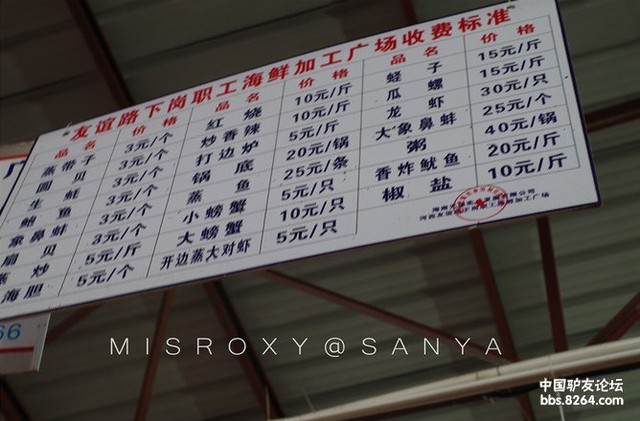 友谊路下岗职工海鲜加工广场收费标准
品名 价格 品名 价格 品名 价格
蒸带子 3元/个 红烧 10元/斤 蛏子 15元/斤
圆贝 3元/个 炒香辣 10元/斤 瓜螺 15元/斤
生蚝 3元/个 打边炉 5元/斤 龙虾 30元/只
鲍鱼 3元/个 锅底 20元/锅 大象鼻蚌 25元/个
象鼻蚌 3元/个 蒸鱼 25元/条 粥 40元/锅
扇贝 3元/个 小螃蟹 5元/斤 香炸鱿鱼 20元/斤
蒸炒 5元/斤 大螃蟹 10元/只 椒盐 10元/斤
海胆 5元/个 开边蒸大对虾 5元/只
66
MISROXY@SANYA
中国驴友论坛
bbs.8264.com